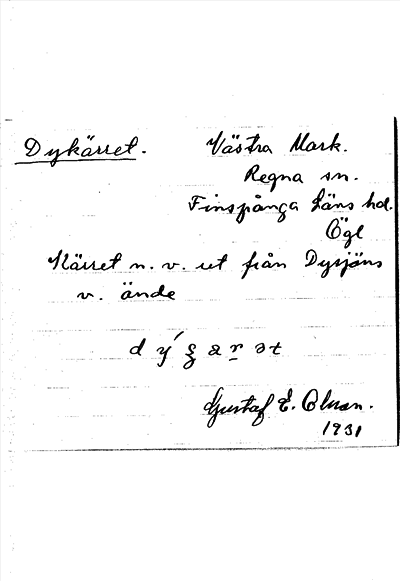 Dykärret. Västra Mark.
Regna sn.
Finspånga Läns hd.
Ögl
Kärret n. v. ut från Dysjöns
v. ände
Gustaf E. Olsson.
1931